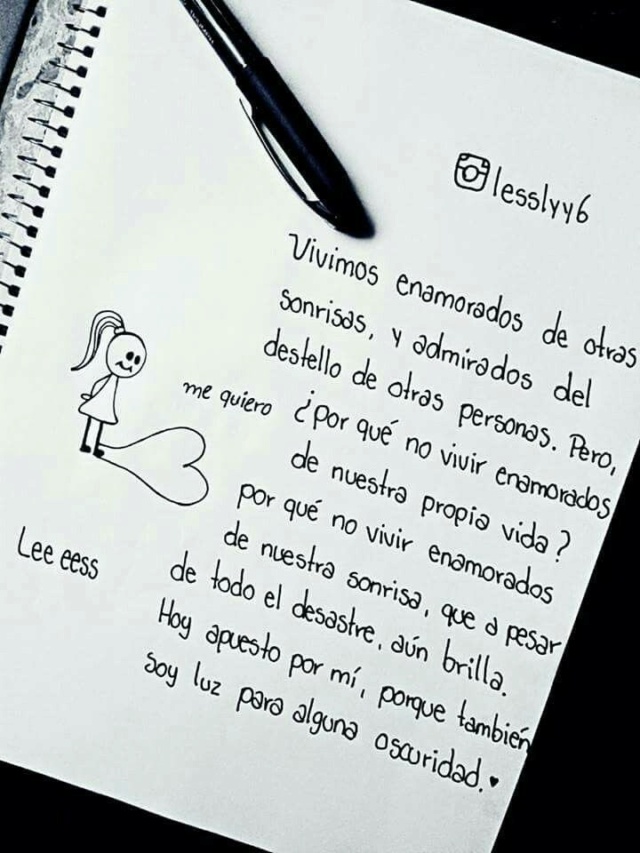 lesslyy6
Vivimos enamorados de otras
sonrisas, y admirados del
destello de otras personas. Pero,
me quiero
¿por qué no vivir enamorados
de nuestra propia vida?
por qué no vivir enamorados
de nuestra sonrisa, que a pesar
de todo el desastre, aún brilla.
Hoy apuesto por mí, porque también
soy luz para alguna oscuridad.♥
Lee eess